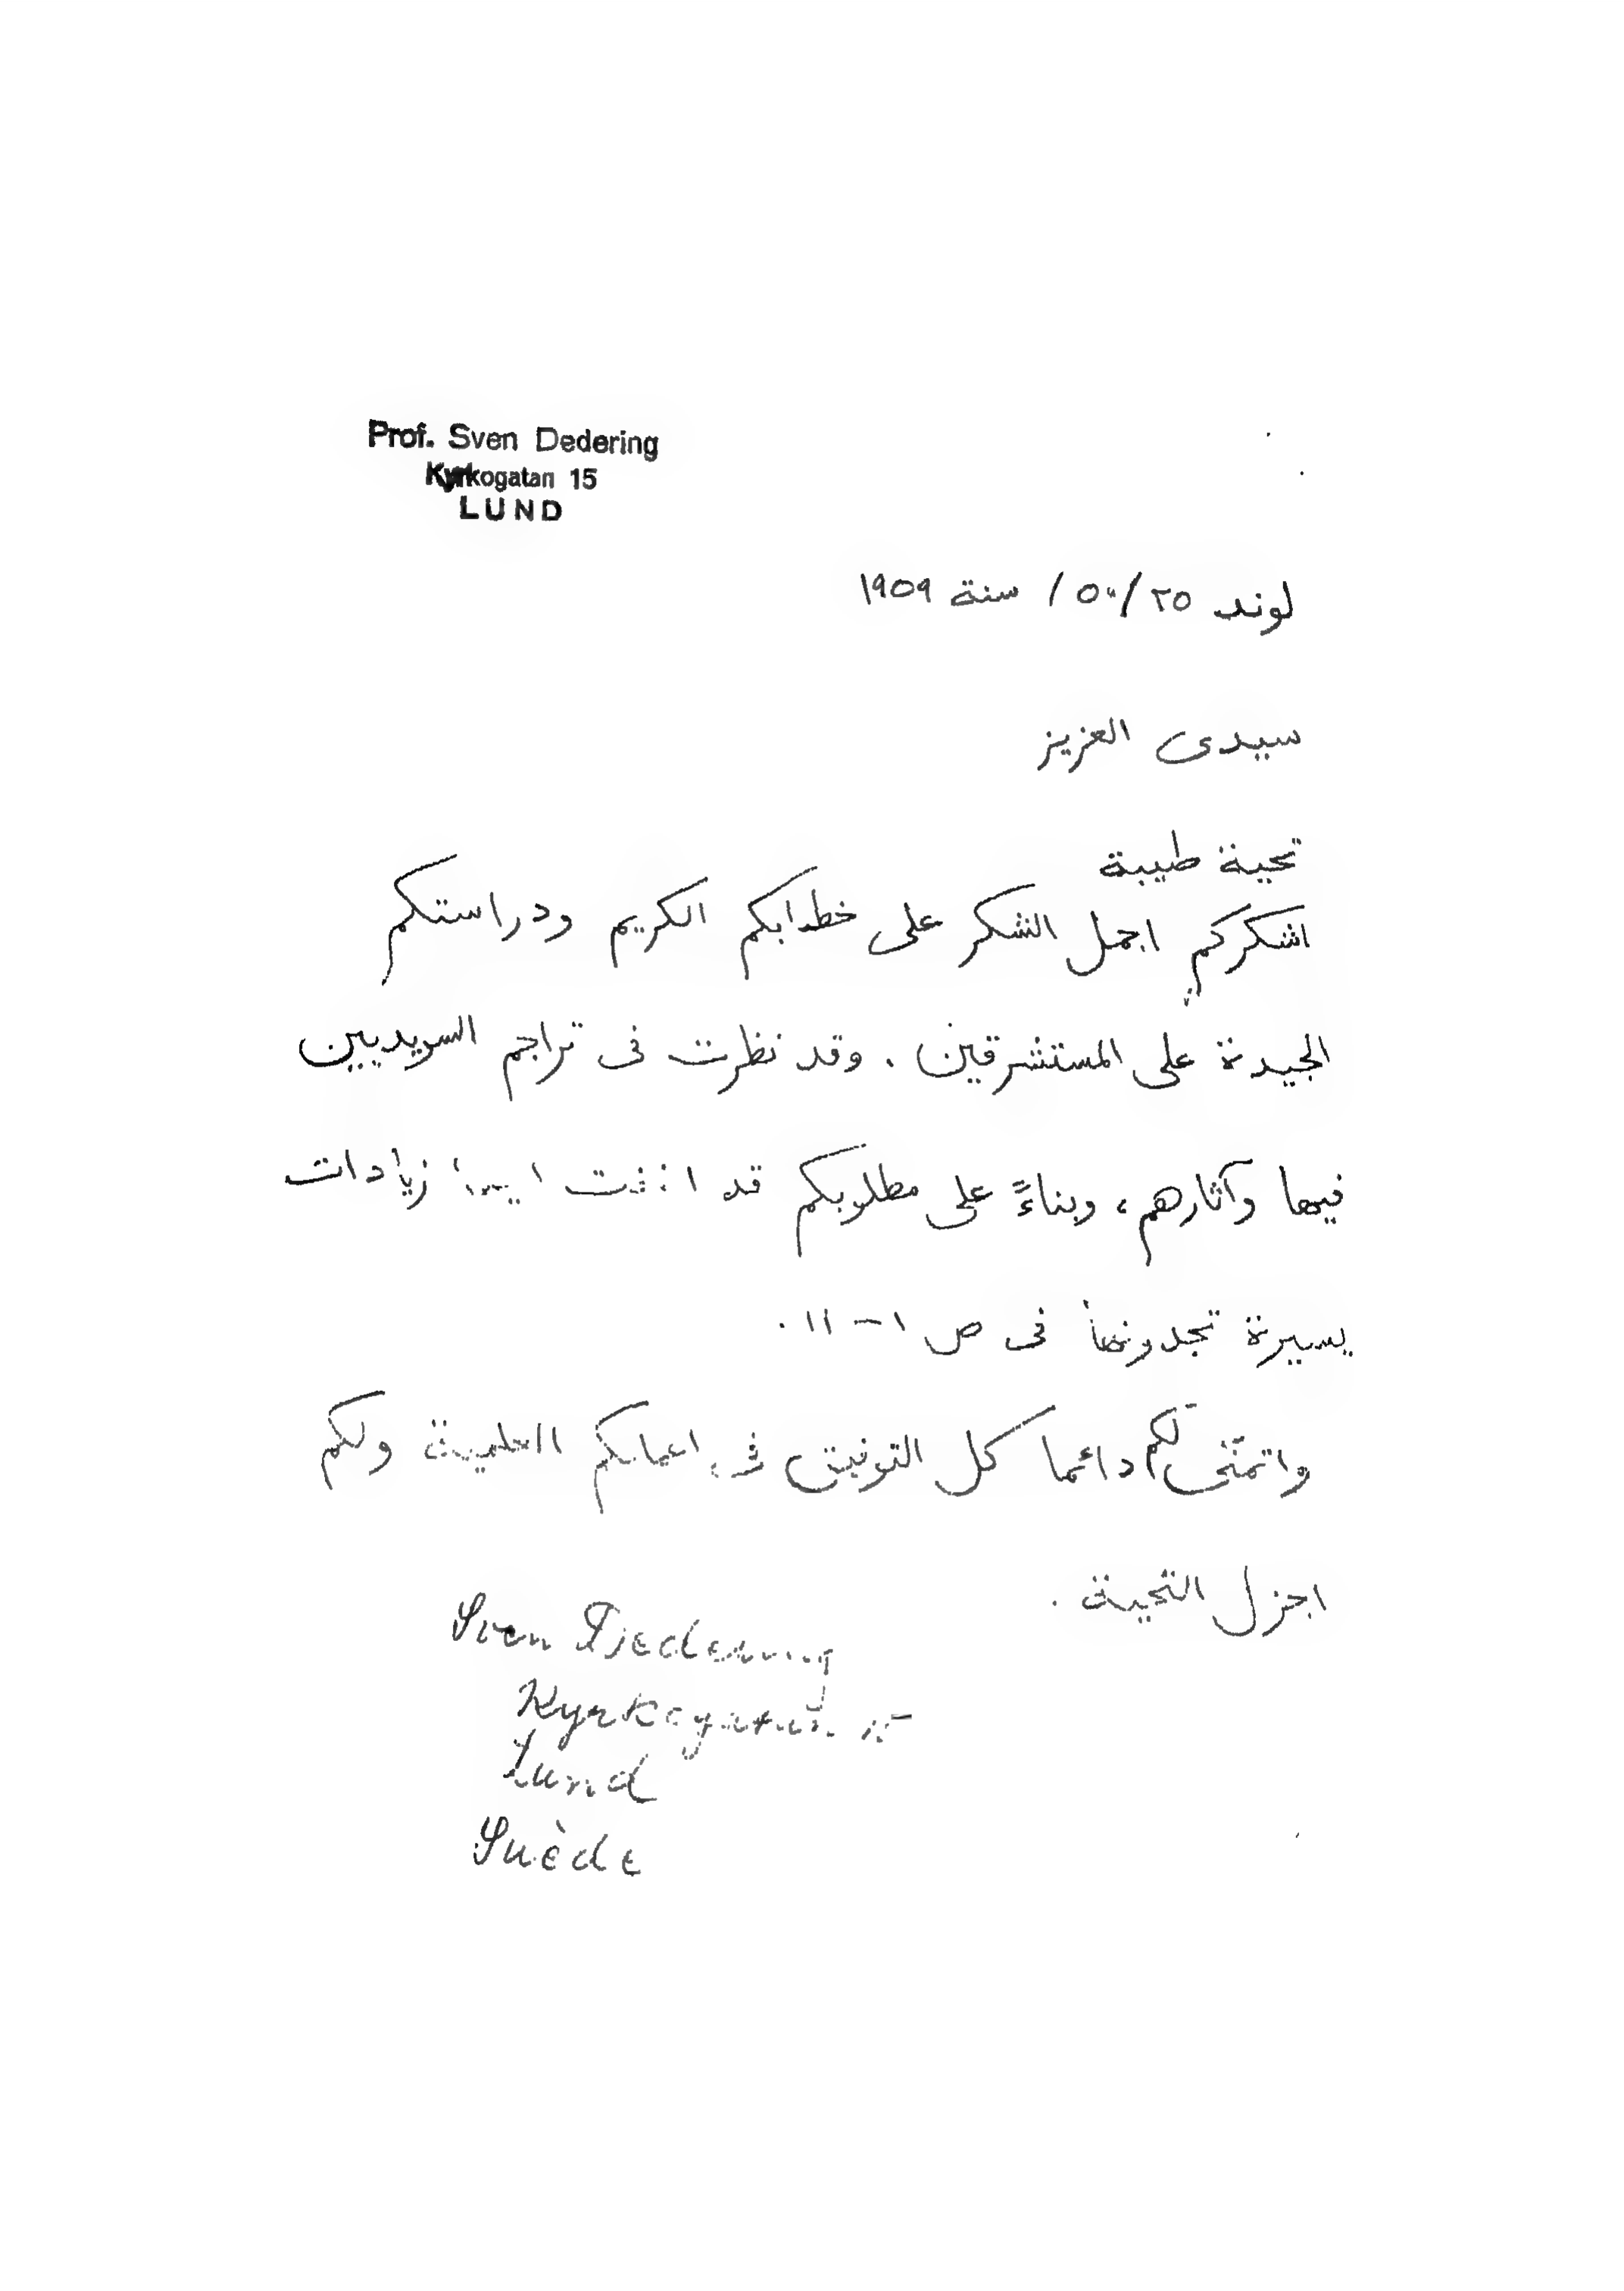 Prof. Sven Dedering
Kyrkogatan 15
LUND
لوند ٢٥/ ٥٠/ سنة ١٩٥٩
سيدى العزيز
تحية طيبة
اشكركم اجمل الشكر على خطابكم الكريم ودراستكم
الجيدة على المستشرقين . وقد نظرت فى تراجم السويديين
فيها وآثارهم، وبناءً على مطلوبكم قد زيادات
يسيرة تجدونها فى ص ١ - ١١ .
واتمنّى لكم دائما كل التوفيق فى اعمالكم العلمية ولكم
اجزل التحية .
Sven Dedering
Kyrkogatan
Lund
Suède